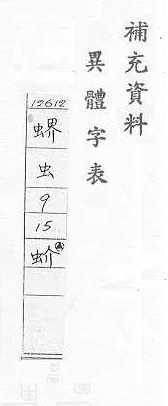 補充資料
異體字表
12612
虫
9
15
蚧